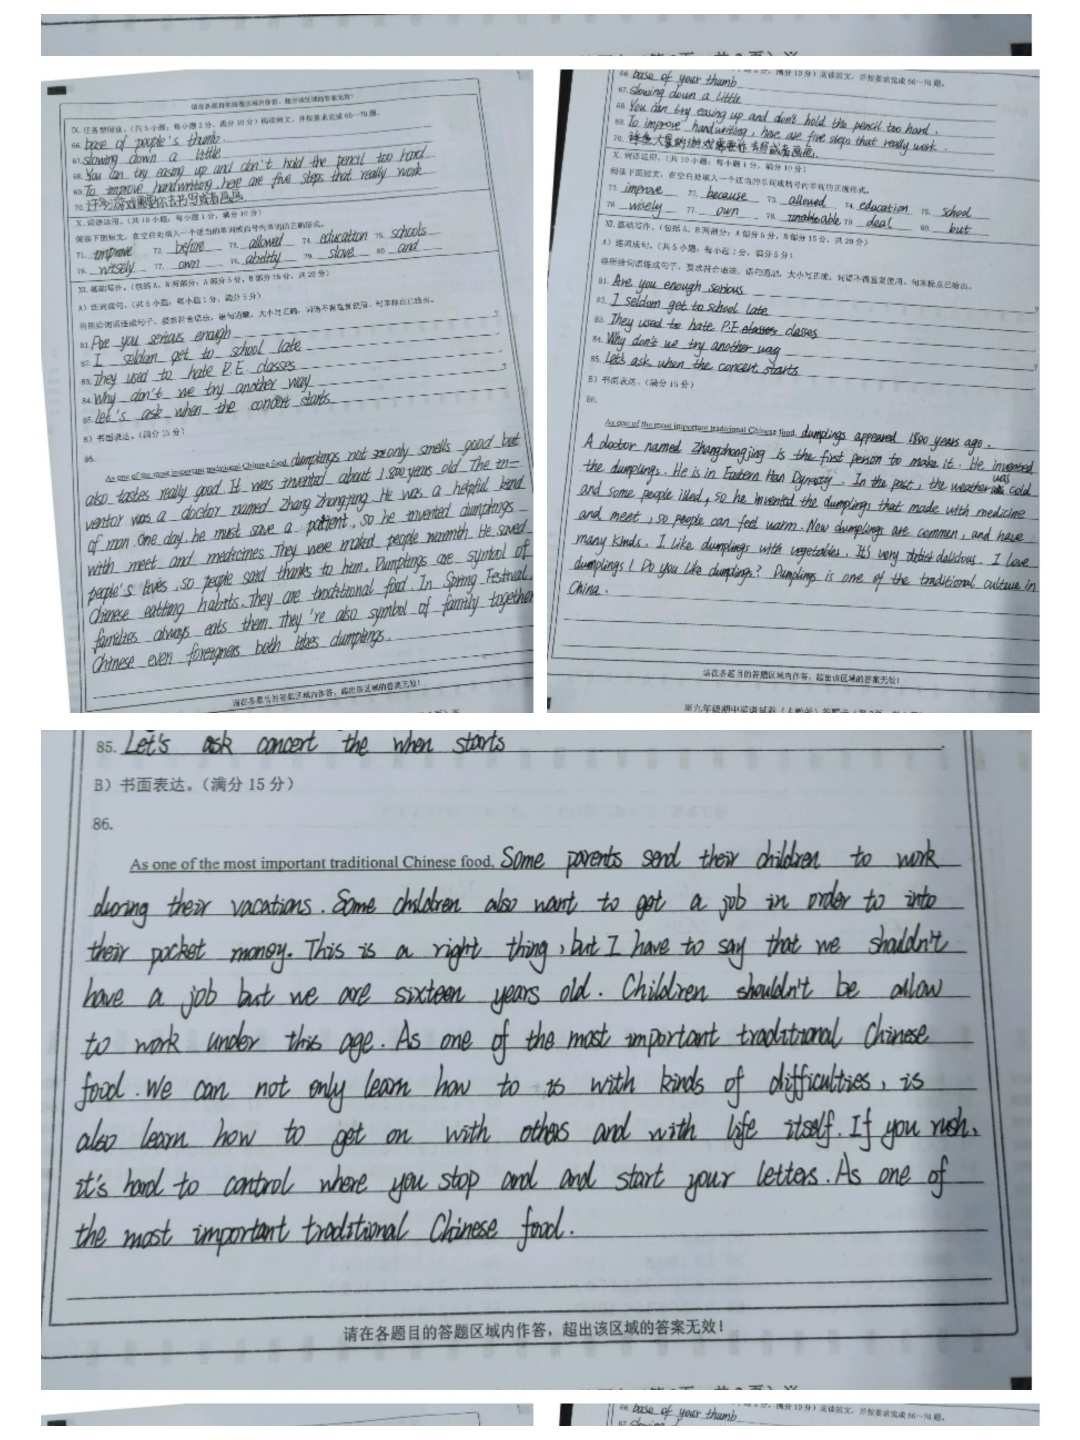 请在各题目的答题区域内作答，超出该区域的答案无效！
IX. 任务型阅读。(共5小题；每小题2分，满分10分) 阅读短文，并按要求完成66～70题。
66. base of people's thumb
67. slowing down a little
68. You can try easing up and don't hold the pencil too hard.
69. To improve handwriting, here are five steps that really work
70. 许多游戏需要你去书写或者画画
X. 词语运用。(共10小题；每小题1分，满分10分)
阅读下面短文，在空白处填入一个适当的单词或括号内单词的正确形式。
71. improve 72. before 73. allowed 74. education 75. schools
76. wisely 77. own 78. ability 79. slove 80. and
XI. 基础写作。(包括A、B两部分；A部分5分，B部分15分，共20分)
A) 连词成句。(共5小题；每小题1分，满分5分)
将所给词语连成句子，要求符合语法，语句通顺，大小写正确，词语不得重复使用，句末标点已给出。
81. Are you serious enough ?
82. I seldom get to school late
83. They used to hate P.E. classes
84. Why don't we try another way ?
85. let's ask when the concert starts
B) 书面表达。(满分15分)
86.
As one of the most important traditional Chinese food, dumplings not only smells good but
also tastes really good. It was invented about 1,800 years old. The in-
ventor was a doctor named Zhang Zhongjing. He was a helpful kind
of man. One day, he must save a patient, so he invented dumplings
with meet and medicines. They were maked people warmth. He saved
people's lives, so people said thanks to him. Dumplings are symbol of
Chinese eatting habits. They are traditional food. In Spring Festival,
families always eats them. They're also symbol of family together
Chinese even foreigners both likes dumplings.
请在各题目的答题区域内作答，超出该区域的答案无效！
66. base of your thumb
67. slowing down a little
68. You can try easing up and don't hold the pencil too hard.
69. To improve handwriting, here are five steps that really work.
70.
X. 词语运用。(共10小题；每小题1分，满分10分)
阅读下面短文，在空白处填入一个适当的单词或括号内单词的正确形式。
71. improve 72. because 73. allowed 74. education 75. school
76. wisely 77. own 78. able 79. deal 80. but
XI. 基础写作。(包括A、B两部分；A部分5分，B部分15分，共20分)
A) 连词成句。(共5小题；每小题1分，满分5分)
将所给词语连成句子，要求符合语法，语句通顺，大小写正确，词语不得重复使用，句末标点已给出。
81. Are you enough serious
82. I seldom get to school late
83. They used to hate P.E classes classes
84. Why don't we try another way
85. Let's ask when the concert starts
B) 书面表达。(满分15分)
86.
As one of the most important traditional Chinese food, dumplings appeared 1800 years ago.
A doctor named Zhangzhongjing is the first person to make it. He invented
the dumplings. He is in Eastern Han Dynasty. In the past, the weather was cold
and some people illed, so he invented the dumplings that made with medicine
and meet, so people can feel warm. Now dumplings are commen, and have
many kinds. I like dumplings with vegetables. It's very delicious. I love
dumplings! Do you like dumplings? Dumplings is one of the traditional culture in
China.
请在各题目的答题区域内作答，超出该区域的答案无效！
85. Let's ask concert the when starts.
B) 书面表达。(满分15分)
86.
As one of the most important traditional Chinese food, Some parents send their children to work
during their vacations. Some children also want to get a job in order to into
their pocket money. This is a right thing, but I have to say that we shouldn't
have a job but we are sixteen years old. Children shouldn't be allow
to work under this age. As one of the most important traditional Chinese
food. We can not only learn how to is with kinds of difficulties, is
also learn how to get on with others and with life itself. If you rush,
it's hard to control where you stop and and start your letters. As one of
the most important traditional Chinese food.
请在各题目的答题区域内作答，超出该区域的答案无效！
66. base of your thumb